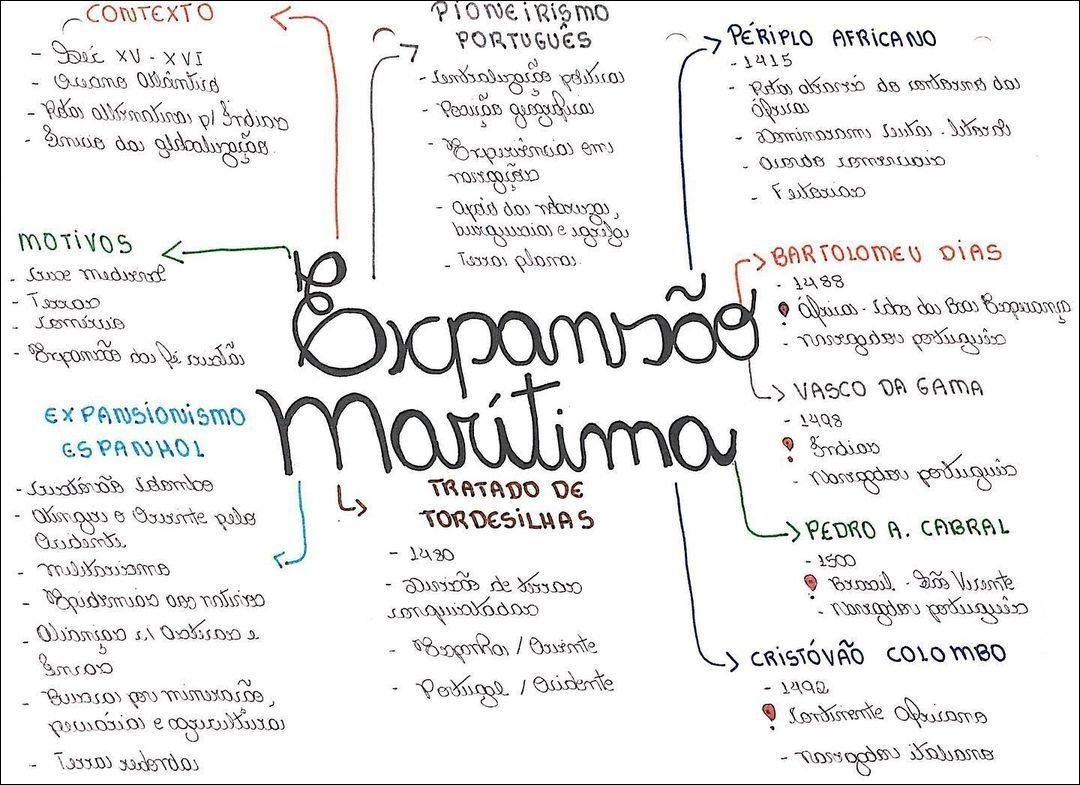 CONTEXTO
- Séc XV - XVI
- Oceano Atlântico
- Rotas alternativas p/ Índias
- Início da globalização.
PIONEIRISMO
PORTUGUÊS
- Centralização política
- Posição geográfica
- Experiências em
navegação
- Apoio da nobreza,
burguesia e igreja
- Terra plana.
PÉRIPLO AFRICANO
- 1415
- Rotas através do contorno da
África
- Dominaram Ceuta - litoral
- Acordo comerciais
- Feitorias
MOTIVOS
- Crise medieval
- Terras
- Comércio
- Expansão da fé cristã
Expansão
Marítima
BARTOLOMEU DIAS
- 1488
África - Cabo da Boa Esperança
- navegador português
VASCO DA GAMA
- 1498
Índias
- Navegador português
PEDRO A. CABRAL
- 1500
Brasil - São Vicente
- Navegador português
CRISTÓVÃO COLOMBO
- 1492
Continente Africano
- navegador italiano
EXPANSIONISMO
ESPANHOL
- Cristóvão Colombo
- Atingir o Oriente pelo
Ocidente
- Militarismo
- Epidemias aos nativos
- Alianças c/ Astecas e
Incas
- Busca por mineração,
pecuária e agricultura
- Terra redonda
TRATADO DE
TORDESILHAS
- 1480
- Divisão de terras
conquistadas
- Espanha / Oriente
- Portugal / Ocidente